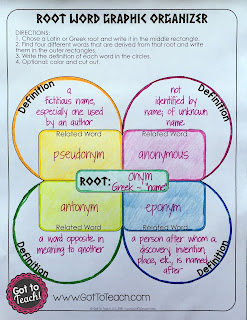 ROOT WORD GRAPHIC ORGANIZER
DIRECTIONS:
1. Chose a Latin or Greek root and write it in the middle rectangle.
2. Find four different words that are derived from that root and write
them in the outer rectangles.
3. Write the definition of each word in the circles.
4. Optional: color and cut out.
Definition
a
fictitious name,
especially one used
by an author
Related Word
pseudonym
Definition
not
identified by
name; of unknown
name
Related Word
anonymous
ROOT:
onym
Greek - "name"
Related Word
antonym
a word opposite in
meaning to another
Definition
Related Word
eponym
a person after whom a
discovery, invention,
place, etc., is named
after
Definition
Got to
Teach!
www.GotToTeach.com